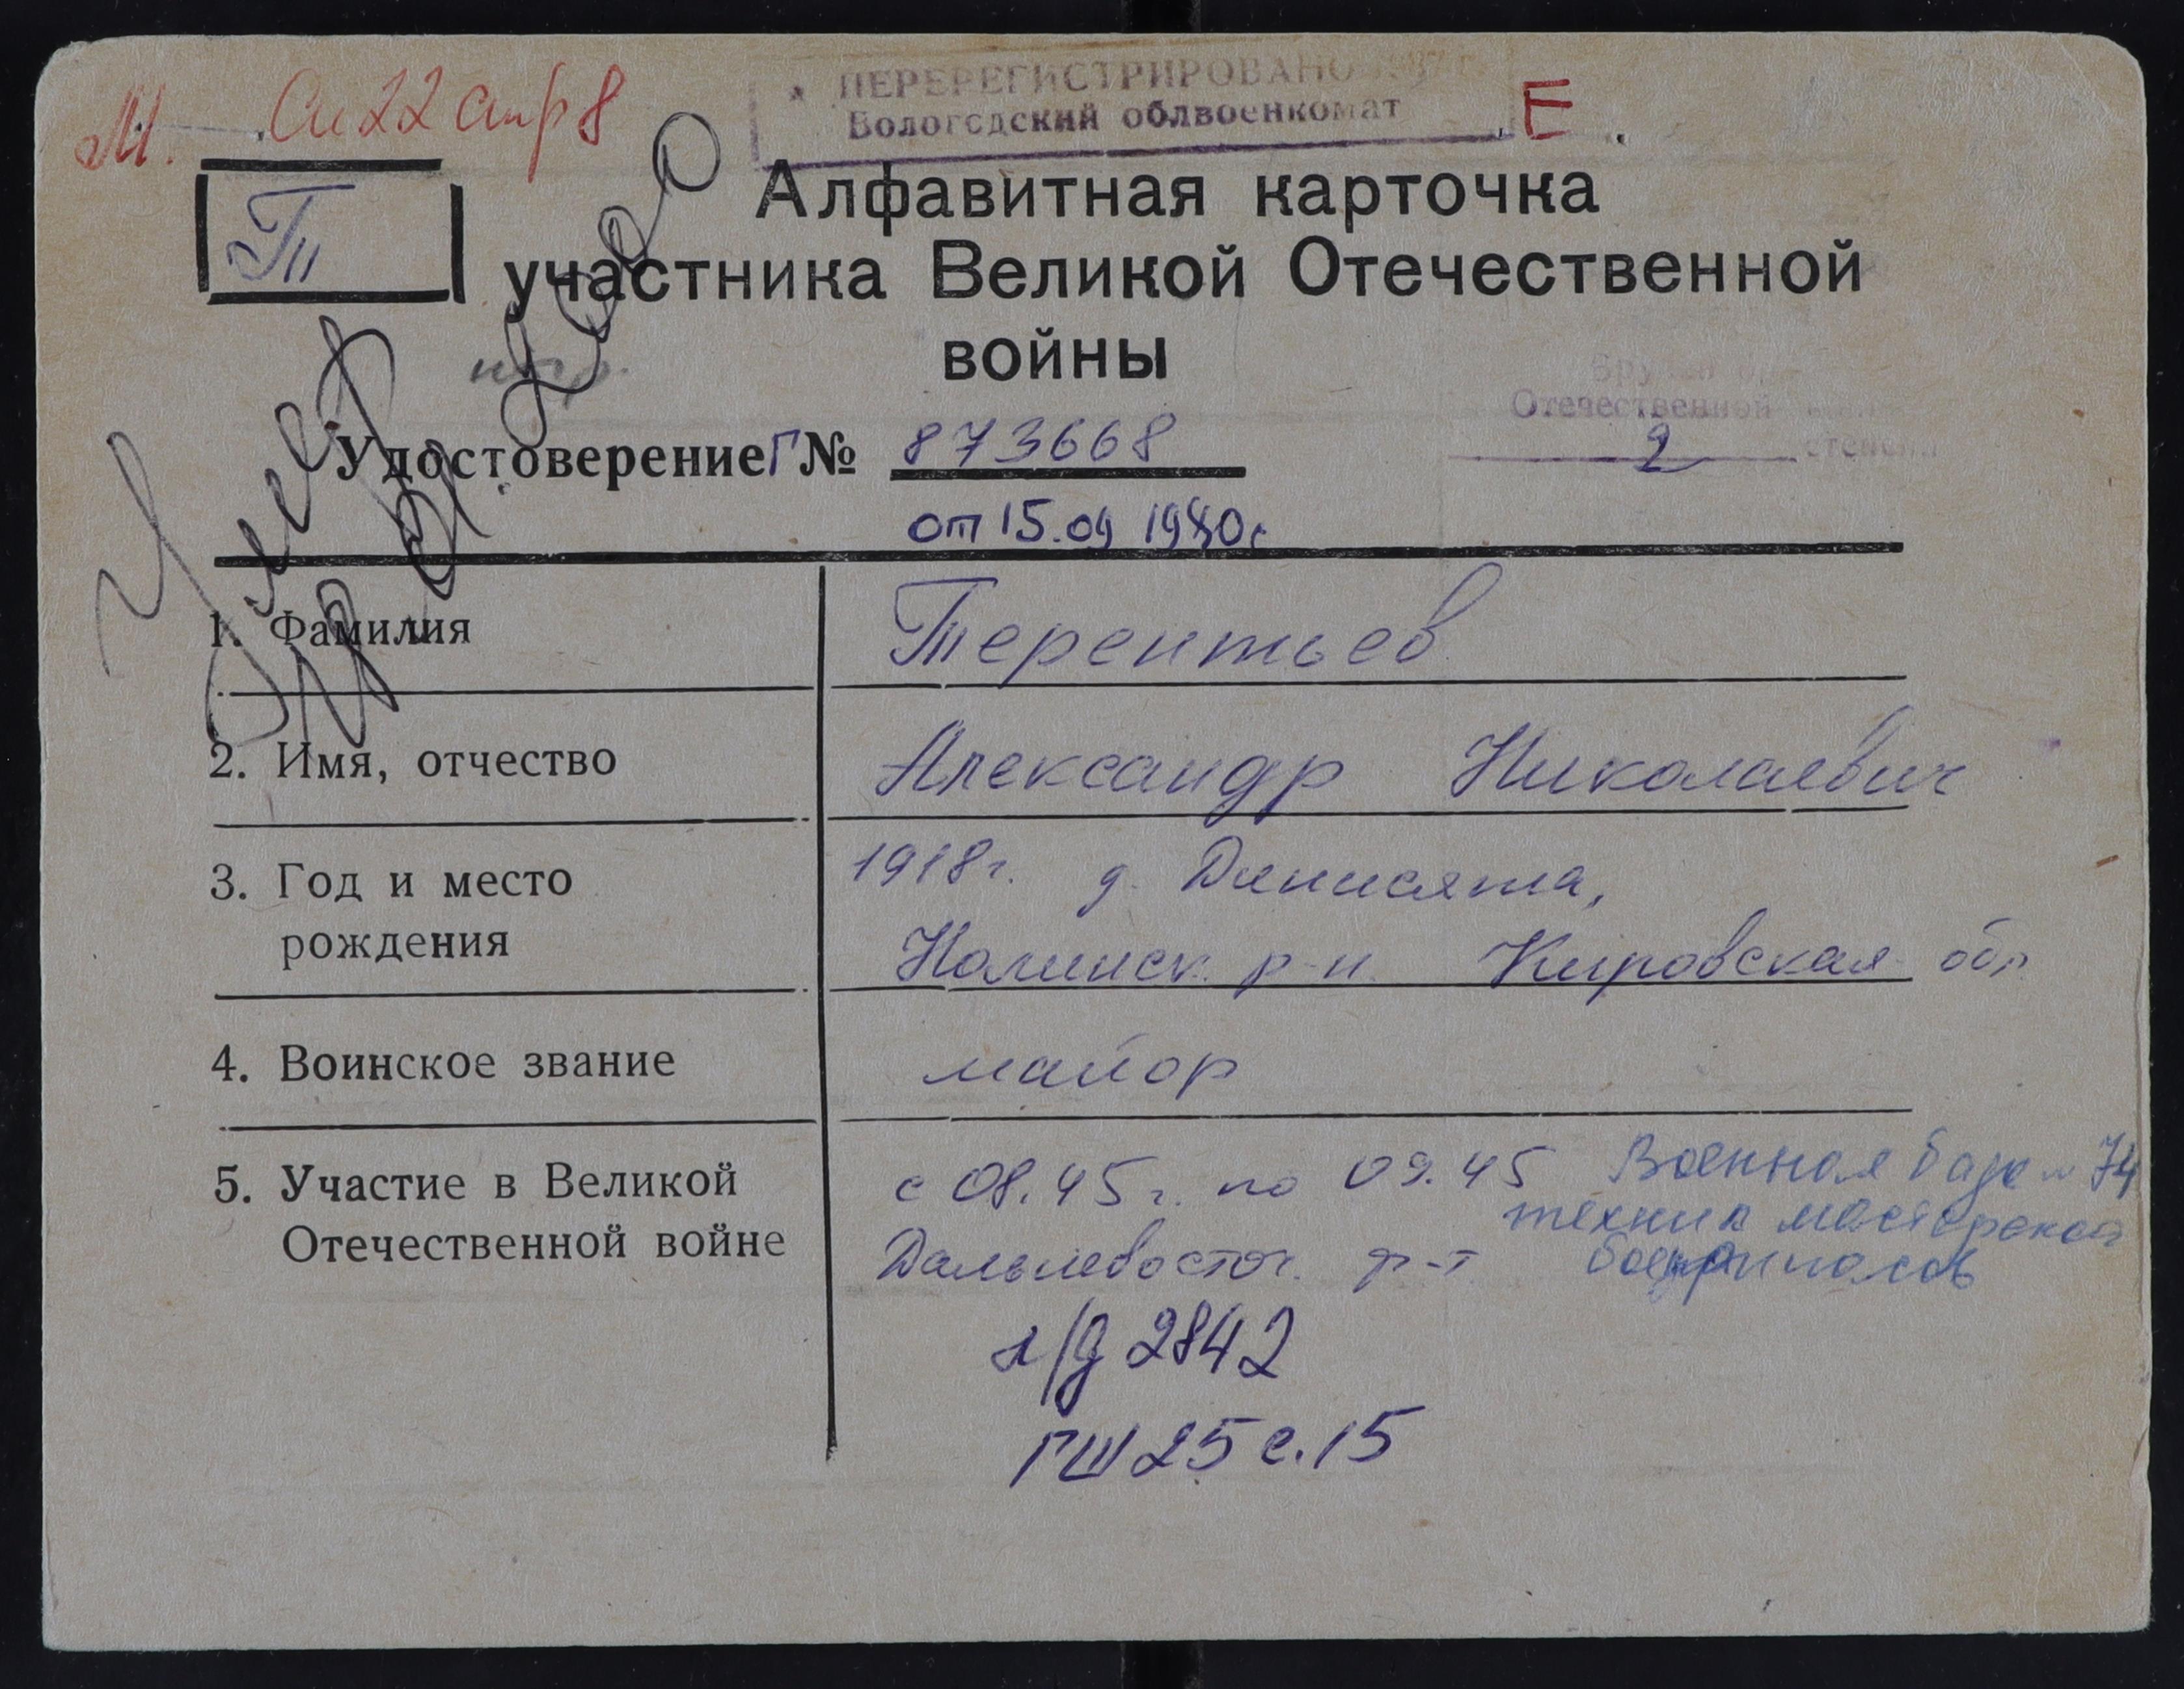 ПЕРЕРЕГИСТРИРОВАНО
Вологодский облвоенкомат
М.
Е
Т
Алфавитная карточка
участника Великой Отечественной
войны
Умер
Отечественной
2 степени
Удостоверение Г № 873668
от 15.09 1980г
1. Фамилия Терентьев
2. Имя, отчество Александр Николаевич
3. Год и место 1918г. д. Денисята,
рождения Нолинск. р-н Кировская обл
4. Воинское звание майор
5. Участие в Великой с 08.45г. по 09.45 Военная база № 74
техник мастерской
Отечественной войне Дальневосточ. ф-т боеприпасов
л/д 2842
ГШ 25 с. 15